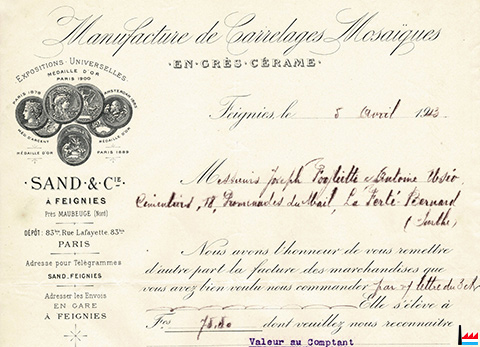 Manufacture de Carrelages Mosaïques
EN GRÈS CÉRAME
EXPOSITIONS UNIVERSELLES
MÉDAILLE D'OR
PARIS 1900
PARIS 1878
AMSTERDAM 1883
MÉD. D'ARGENT
MÉDAILLE D'OR
MÉDAILLE D'OR
PARIS 1889
SAND & CIE
A FEIGNIES
Près MAUBEUGE (Nord)
DÉPÔT: 83ter, Rue Lafayette, 83ter
PARIS
Adresse pour Télégrammes
SAND, FEIGNIES
Adresser les Envois
EN GARE
A FEIGNIES
Feignies, le 5 Avril 1913
Messieurs Joseph Antoine
Cimentiers, 18, Promenades du Mail, La Ferté-Bernard
(Sarthe)
Nous avons l'honneur de vous remettre
d'autre part la facture des marchandises que
vous avez bien voulu nous commander par lettre du 3
Elle s'élève à
Frs 78.80 dont veuillez nous reconnaître
Valeur au Comptant